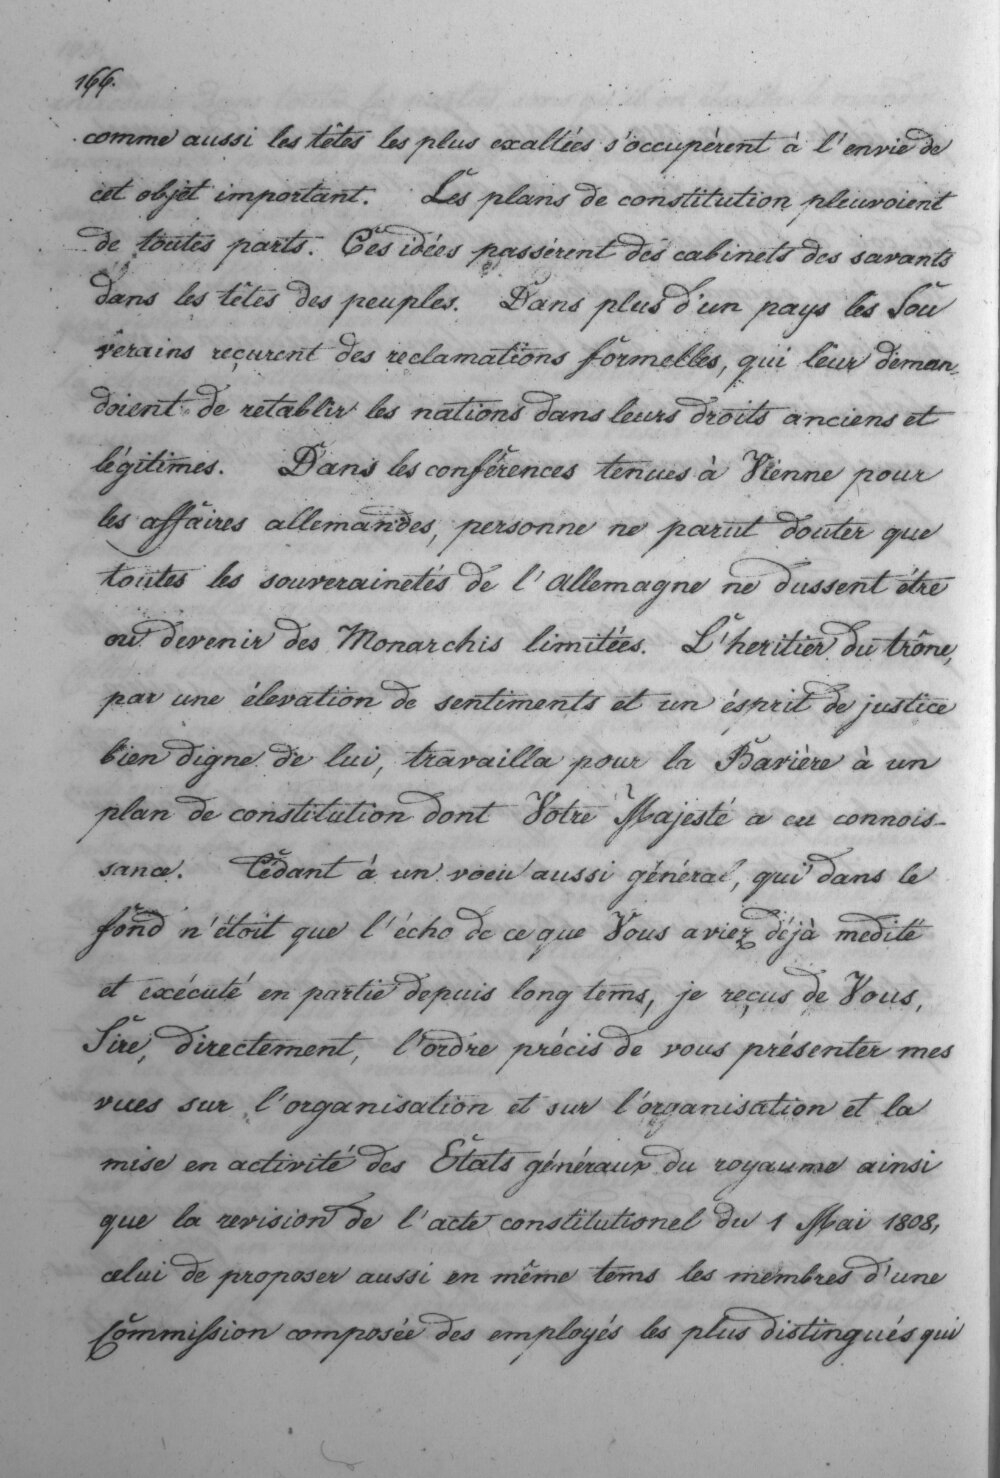 166.
comme aussi les têtes les plus exaltées s'occupèrent à l'envie de
cet objet important. Les plans de constitution pleuvoient
de toutes parts. Ces idées passèrent des cabinets des savants
dans les têtes des peuples. Dans plus d'un pays les Sou
verains reçurent des reclamations formelles, qui leur deman
doient de retablir les nations dans leurs droits anciens et
légitimes. Dans les conférences tenues à Vienne pour
les affaires allemandes, personne ne parut douter que
toutes les souverainetés de l'allemagne ne dussent étre
ou devenir des Monarchis limitées. L'heritier du trône,
par une élevation de sentiments et un ésprit de justice
bien digne de lui, travailla pour la Bavière à un
plan de constitution dont Votre Majesté a eu connois-
sance. Cédant à un voeu aussi général, qui dans le
fond n'étoit que l'écho de ce que Vous aviez déjà medité
et exécuté en partie depuis long tems, je reçus de Vous,
Sire, directement, l'ordre précis de vous présenter mes
vues sur l'organisation et sur l'organisation et la
mise en activité des Etats généraux du royaume ainsi
que la revision de l'acte constitutionel du 1 Mai 1808,
celui de proposer aussi en même tems les membres d'une
Commission composée des employés les plus distingués qui